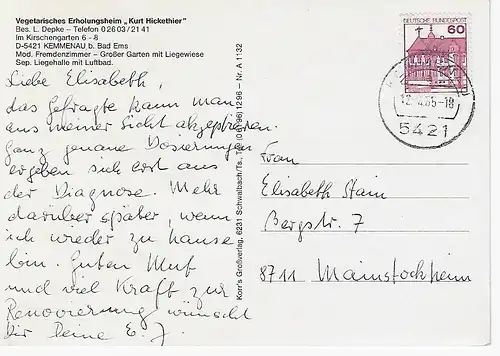 Vegetarisches Erholungsheim „Kurt Hickethier"
Bes. L. Depke – Telefon 0 26 03 / 21 41
Im Kirschengarten 6 - 8
D-5421 KEMMENAU b. Bad Ems
Mod. Fremdenzimmer – Großer Garten mit Liegewiese
Sep. Liegehalle mit Luftbad.
Liebe Elisabeth,
das Gefragte kann man
aus meiner Sicht akzeptieren.
Ganz genaue Dosierungen
ergeben sich erst aus
der Diagnose. Mehr
darüber später, wenn
ich wieder zu hause
bin. Guten Mut
und viel Kraft zur
Renovierung wünscht
Dir Deine E. J.
Korr's Großverlag, 6231 Schwalbach/Ts., Tel. (0 61 96) 12 96 – Nr. A 1132
DEUTSCHE BUNDESPOST
60
5421
Frau
Elisabeth Stain
Bergstr. 7
8711 Mainstockheim